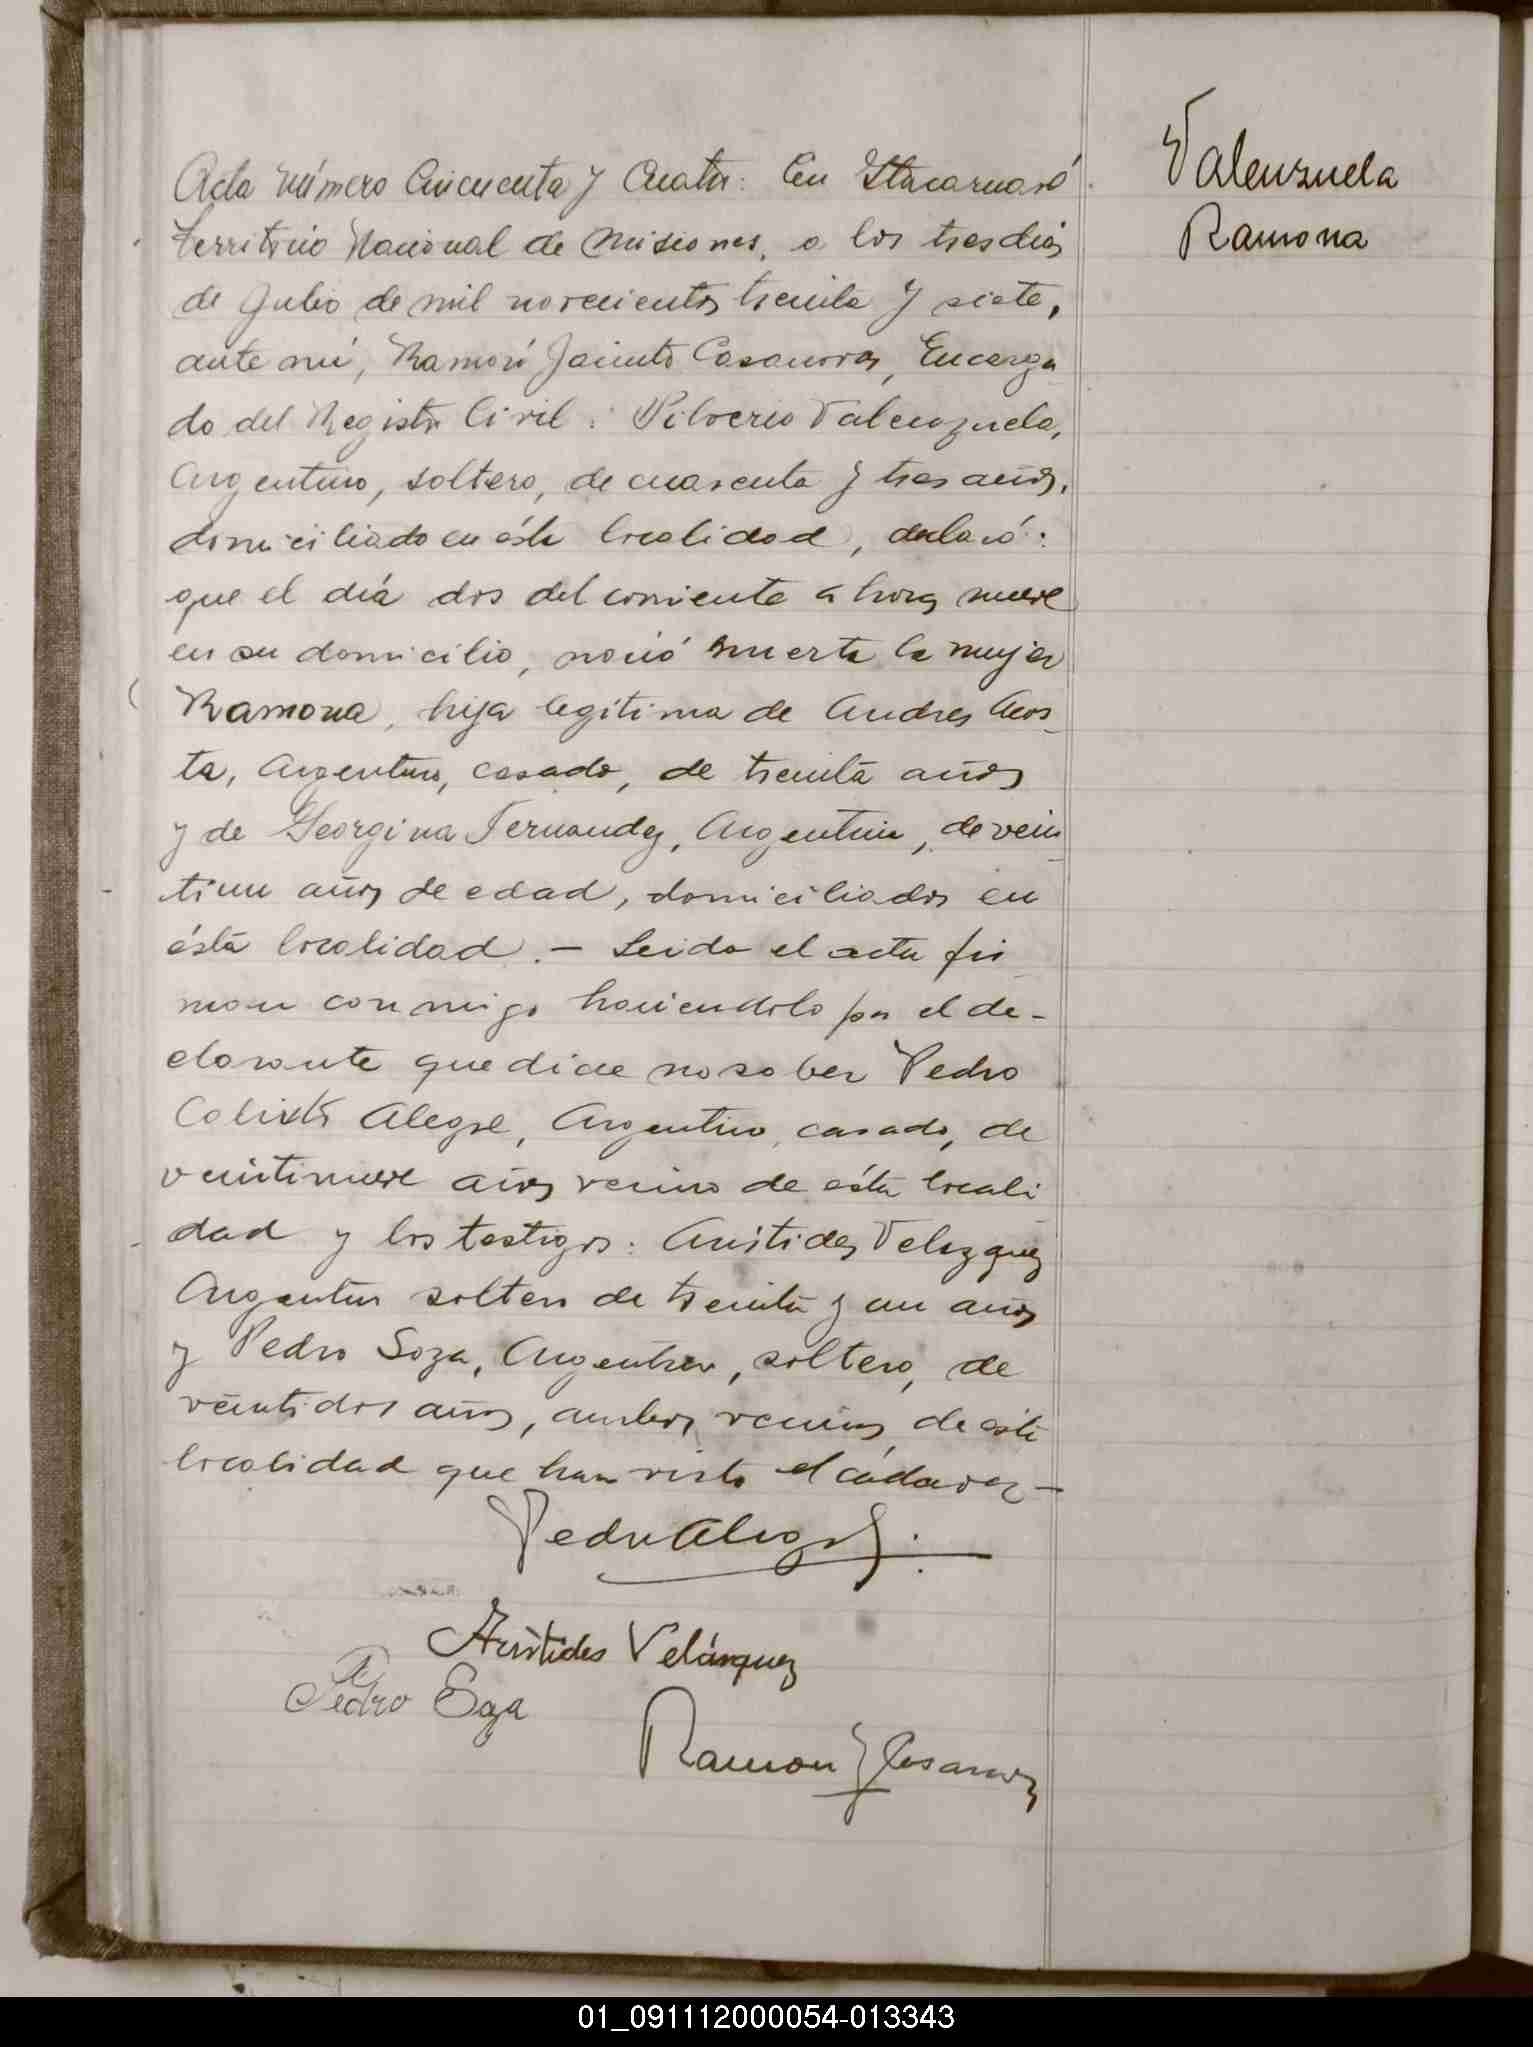 Acta número Cincuenta y Cuatro: En Itacaruaré
Territorio Nacional de Misiones, a los tres días
de Julio de mil novecientos treinta y siete,
ante mí, Ramón Jacinto Casanovas, Encarga
do del Registro Civil: Silverio Valenzuela,
Argentino, soltero, de cuarenta y tres años,
domiciliado en ésta localidad, declaró:
que el día dos del corriente a horas nueve
en su domicilio, nació muerta la mujer
Ramona, hija legítima de Andres Acos-
ta, Argentino, casado, de treinta años
y de Georgina Fernandez, Argentina, de vein
tiun años de edad, domiciliados en
ésta localidad. — Leida el acta fir
man conmigo haciendolo por el de-
clarante que dice no saber Pedro
Calixto Alegre, Argentino, casado, de
veintinueve años vecino de ésta locali
dad y los testigos: Aristides Velazquez
Argentino soltero de treinta y un años
y Pedro Soza, Argentino, soltero, de
veintidos años, ambos vecinos de ésta
localidad que han visto el cádaver —
Pedro Alegre
Aristides Velásquez
Pedro Soza
Ramon J Casanovas
Valenzuela
Ramona
01_091112000054-013343